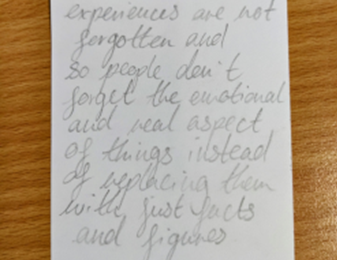 experiences are not
forgotten and
so people don't
forget the emotional
and real aspect
of things instead
of replacing them
with just facts
and figures